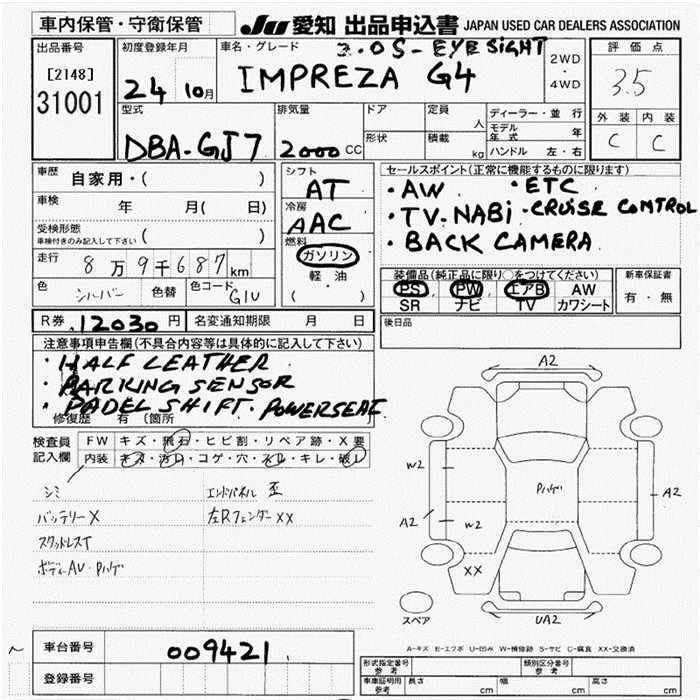 車内保管・守衛保管
JU 愛知 出品申込書 JAPAN USED CAR DEALERS ASSOCIATION
出品番号
[2148]
31001
初度登録年月
24 10月
車名・グレード 2.0S-EYESIGHT
IMPREZA G4
2WD
・
4WD
評価点
3.5
外装 内装
C C
型式
DBA-GJ7
排気量
2000 CC
ドア
形状
定員
人
積載
kg
ディーラー・並行
モデル年式 年
ハンドル 左・右
車歴 自家用・( )
車検 年 月( 日)
受検形態
車検付きのみ記入して下さい ( )
走行 8万9千687km
色 シルバー 色替 色コード G1U
シフト
AT
冷房
AAC
燃料
ガソリン
軽・油
( )
セールスポイント(正常に機能するものに限ります)
・AW ・ETC
・TV-NABi・CRUISE CONTROL
・BACK CAMERA
装備品(純正品に限り○をつけてください)
PS PW エアB AW
SR ナビ TV カワシート
新車保証書
有・無
R券 12030円 名変通知期限 月 日
後日品
注意事項申告欄(不具合内容等は具体的に記入して下さい)
・HALF LEATHER
・PARKING SENSOR
・PADEL SHIFT・POWERSEAT
修復歴 有(箇所
検査員記入欄
FW キズ・飛石・ヒビ割・リペア跡・X要
内装 キズ・汚れ・コゲ・穴・スレ・キレ・破レ
シミ エンドパネル 歪
バッテリーX 左Rフェンダー XX
スタッドレスT
ボディーAU・Pハゲ
A2
W2
Pハゲ
A2
A2
W2
XX
UA2
スペア
A-キズ E-エクボ U-凹み W-補修跡 S-サビ C-腐食 XX-交換済
車台番号 009421
登録番号
型式指定番号 参考 類別区分番号 参考
車車証明用 参考 長さ cm 幅 cm 高さ cm